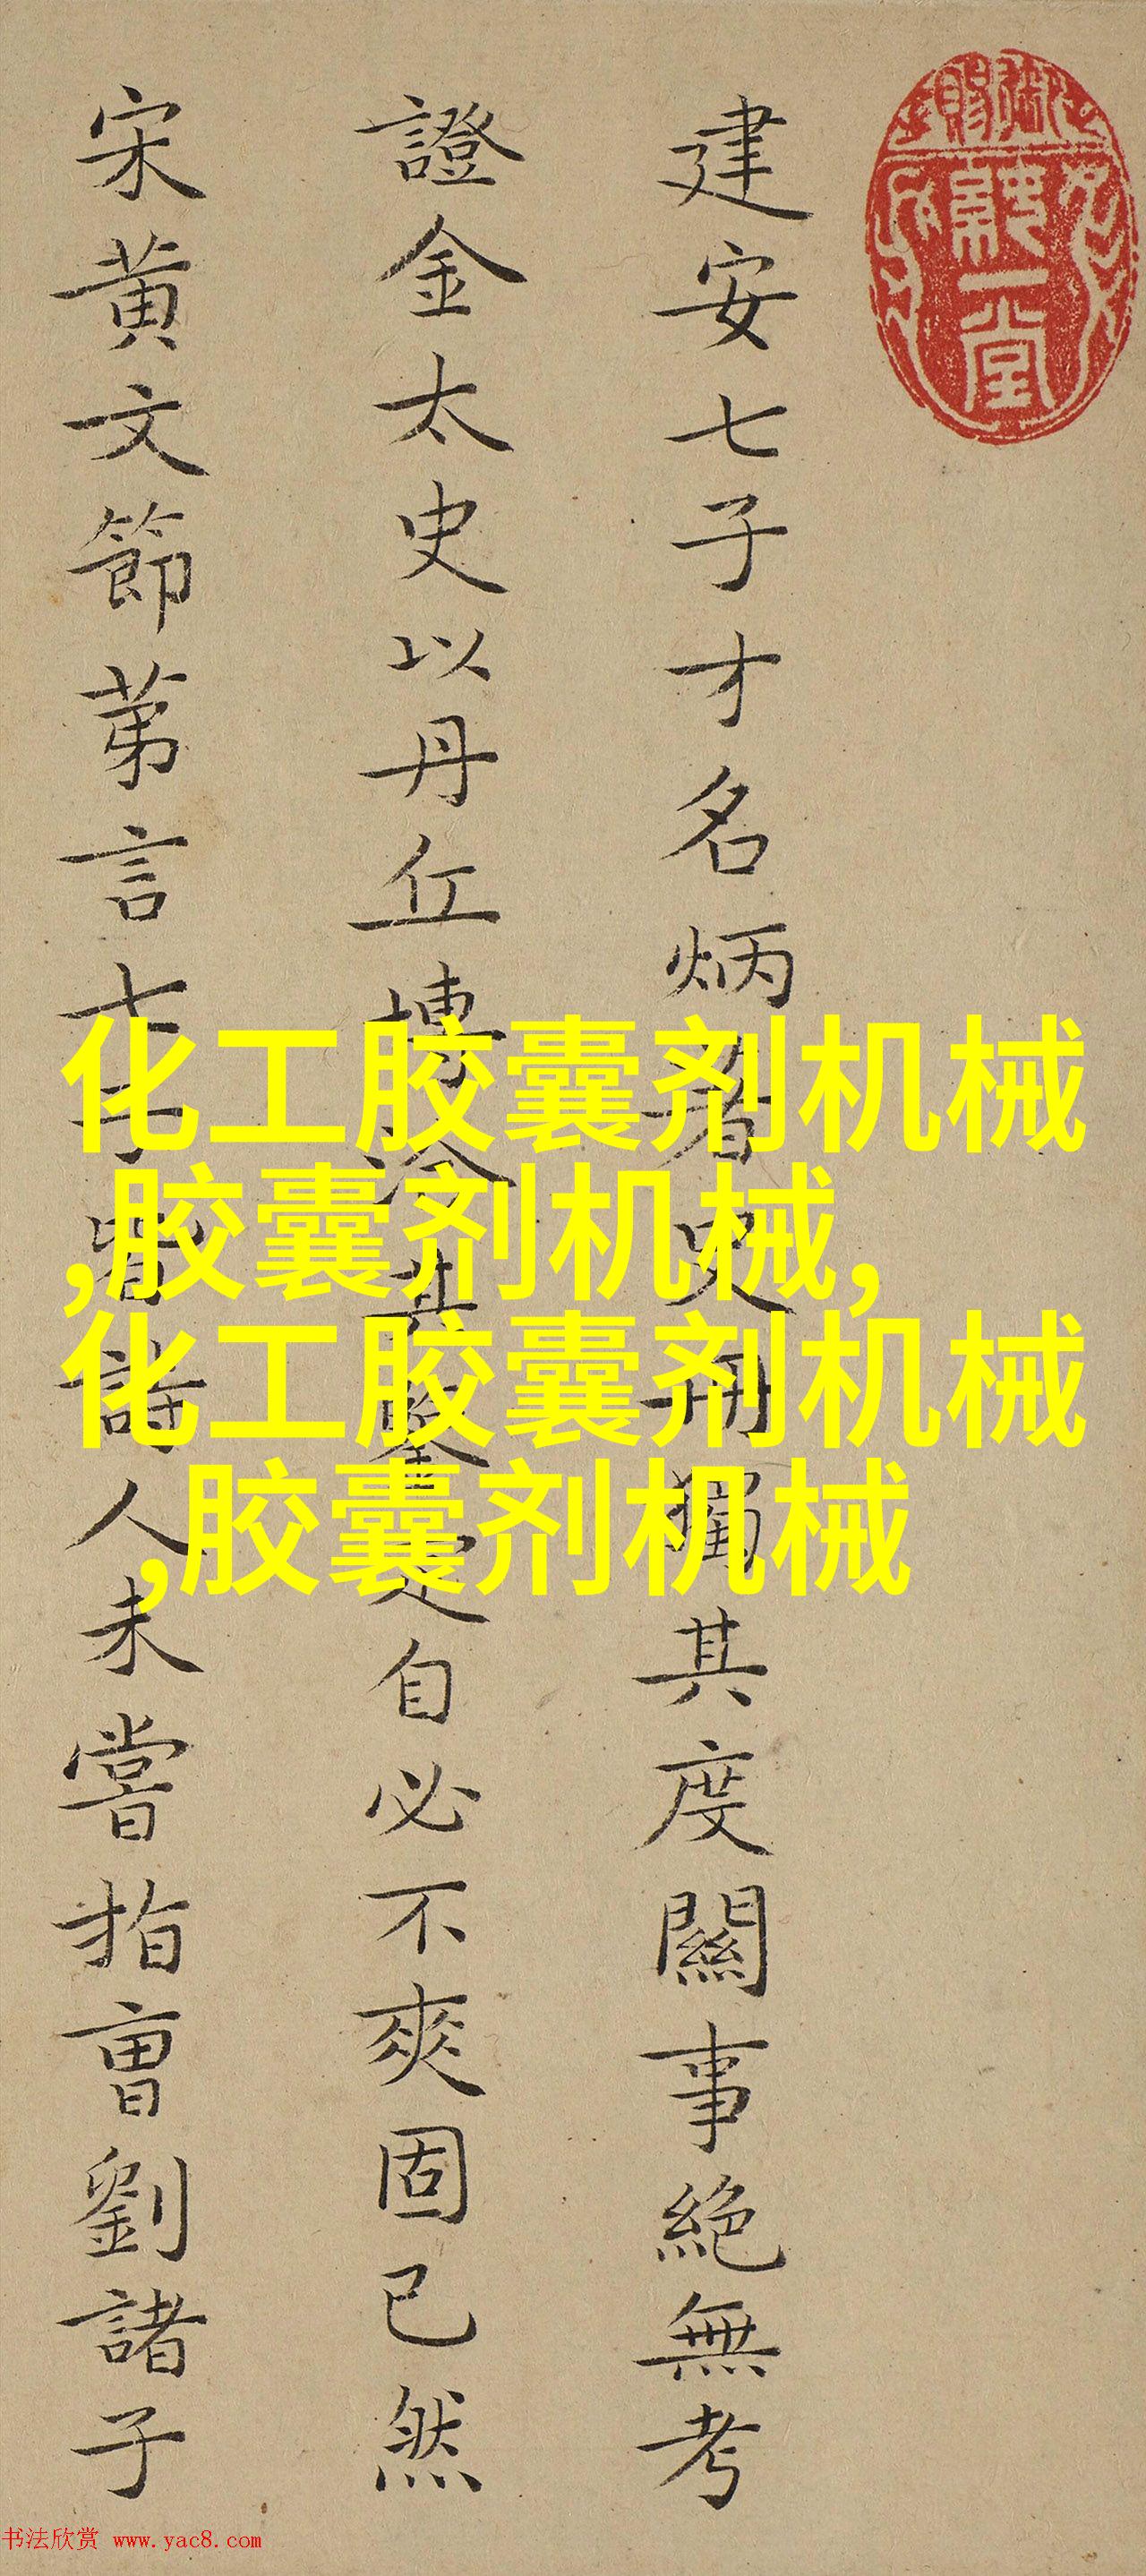 建安七子才名炳著史冊獨其度關事絕無考
證金太史以丹丘博洽其鑒定自必不爽固已然
宋黃文節苐言七子皆詩人未嘗指曹劉諸子
化工胶囊剂机械
,胶囊剂机械,
化工胶囊剂机械
,胶囊剂机械
书法欣赏 www.yac8.com